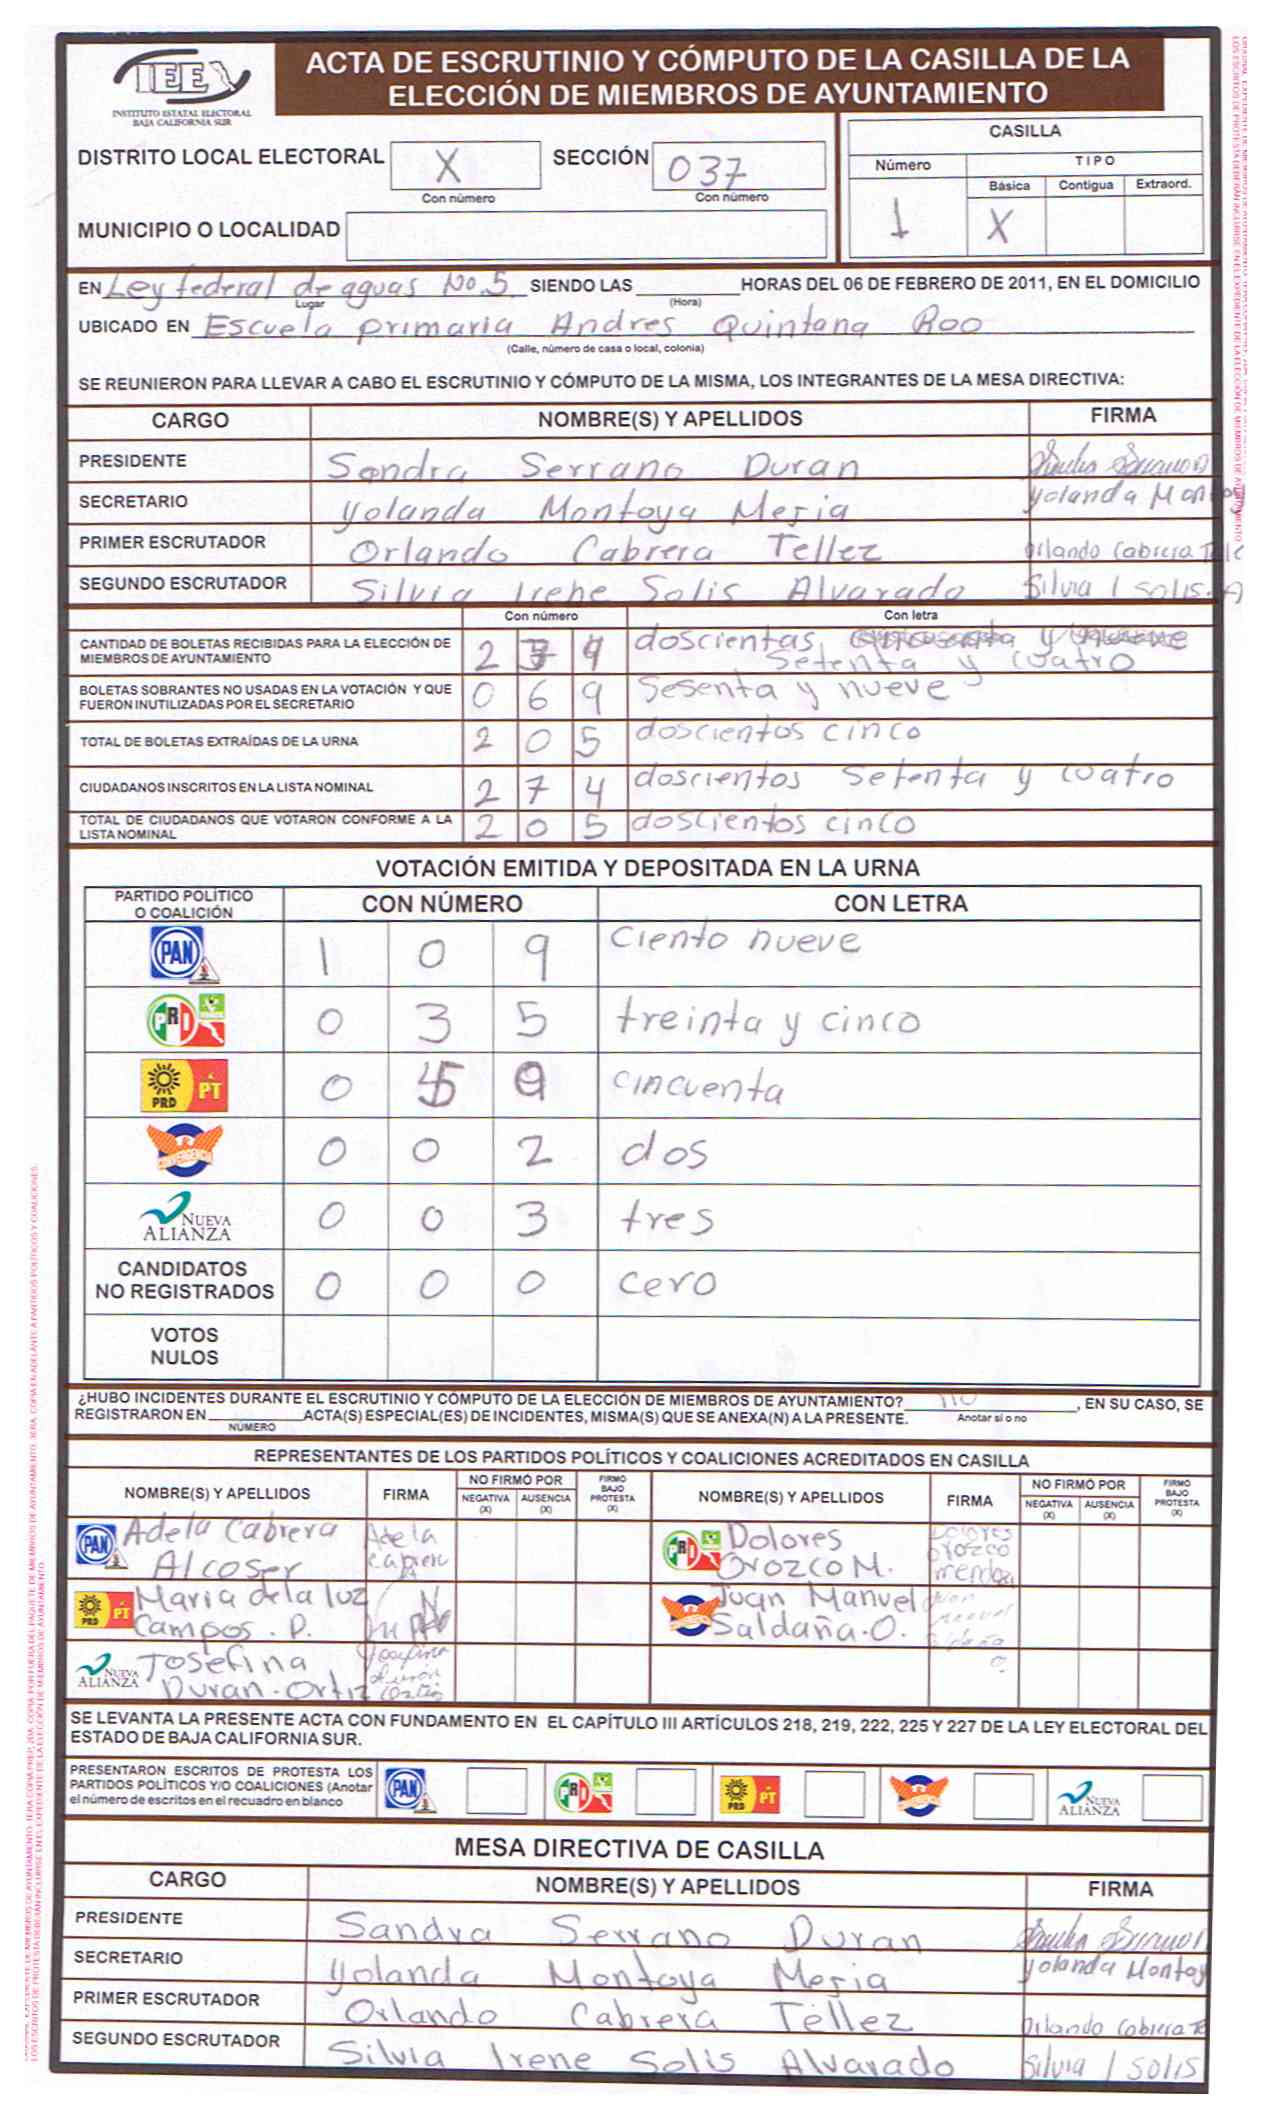 IEE
INSTITUTO ESTATAL ELECTORAL
BAJA CALIFORNIA SUR
ACTA DE ESCRUTINIO Y CÓMPUTO DE LA CASILLA DE LA
ELECCIÓN DE MIEMBROS DE AYUNTAMIENTO
DISTRITO LOCAL ELECTORAL X SECCIÓN 037
Con número Con número
MUNICIPIO O LOCALIDAD
CASILLA
Número TIPO
Básica Contigua Extraord.
1 X
EN Ley federal de aguas No.5 SIENDO LAS HORAS DEL 06 DE FEBRERO DE 2011, EN EL DOMICILIO
Lugar (Hora)
UBICADO EN Escuela primaria Andres Quintana Roo
(Calle, número de casa o local, colonia)
SE REUNIERON PARA LLEVAR A CABO EL ESCRUTINIO Y CÓMPUTO DE LA MISMA, LOS INTEGRANTES DE LA MESA DIRECTIVA:
CARGO NOMBRE(S) Y APELLIDOS FIRMA
PRESIDENTE Sandra Serrano Duran
SECRETARIO Yolanda Montoya Mesia Yolanda Montoy
PRIMER ESCRUTADOR Orlando Cabrera Tellez Orlando Cabrera Telle
SEGUNDO ESCRUTADOR Silvia Irene Solis Alvarado Silvia I Solis.A
Con número Con letra
CANTIDAD DE BOLETAS RECIBIDAS PARA LA ELECCIÓN DE
MIEMBROS DE AYUNTAMIENTO 2 7 4 doscientas y
Setenta y cuatro
BOLETAS SOBRANTES NO USADAS EN LA VOTACIÓN Y QUE
FUERON INUTILIZADAS POR EL SECRETARIO 0 6 9 Sesenta y nueve
TOTAL DE BOLETAS EXTRAÍDAS DE LA URNA 2 0 5 doscientos cinco
CIUDADANOS INSCRITOS EN LA LISTA NOMINAL 2 7 4 doscientos setenta y cuatro
TOTAL DE CIUDADANOS QUE VOTARON CONFORME A LA
LISTA NOMINAL 2 0 5 doscientos cinco
VOTACIÓN EMITIDA Y DEPOSITADA EN LA URNA
PARTIDO POLÍTICO
O COALICIÓN CON NÚMERO CON LETRA
PAN 1 0 9 ciento nueve
PRI 0 3 5 treinta y cinco
PRD PT 0 5 0 cincuenta
CONVERGENCIA 0 0 2 dos
NUEVA ALIANZA 0 0 3 tres
CANDIDATOS
NO REGISTRADOS 0 0 0 cero
VOTOS
NULOS
¿HUBO INCIDENTES DURANTE EL ESCRUTINIO Y CÓMPUTO DE LA ELECCIÓN DE MIEMBROS DE AYUNTAMIENTO? no, EN SU CASO, SE
REGISTRARON EN ACTA(S) ESPECIAL(ES) DE INCIDENTES, MISMA(S) QUE SE ANEXA(N) A LA PRESENTE. Anotar sí o no
NÚMERO
REPRESENTANTES DE LOS PARTIDOS POLÍTICOS Y COALICIONES ACREDITADOS EN CASILLA
NOMBRE(S) Y APELLIDOS FIRMA NO FIRMÓ POR NEGATIVA (X) AUSENCIA (X) FIRMÓ BAJO PROTESTA (X) NOMBRE(S) Y APELLIDOS FIRMA NO FIRMÓ POR NEGATIVA (X) AUSENCIA (X) FIRMÓ BAJO PROTESTA (X)
PAN Adela Cabrera Alcoser Adela Cabrera PRI Dolores Orozco M. Dolores Orozco Mendoza
PRD PT Maria de la luz Campos. P. CONVERGENCIA Juan Manuel Saldaña.O. Juan Manuel Saldaña O
NUEVA ALIANZA Josefina Duran-Ortiz Josefina Durán Ortiz
SE LEVANTA LA PRESENTE ACTA CON FUNDAMENTO EN EL CAPÍTULO III ARTÍCULOS 218, 219, 222, 225 Y 227 DE LA LEY ELECTORAL DEL
ESTADO DE BAJA CALIFORNIA SUR.
PRESENTARON ESCRITOS DE PROTESTA LOS
PARTIDOS POLÍTICOS Y/O COALICIONES (Anotar
el número de escritos en el recuadro en blanco
PAN PRI PRD PT CONVERGENCIA NUEVA ALIANZA
MESA DIRECTIVA DE CASILLA
CARGO NOMBRE(S) Y APELLIDOS FIRMA
PRESIDENTE Sandra Serrano Duran
SECRETARIO Yolanda Montoya Mesia Yolanda Montoy
PRIMER ESCRUTADOR Orlando Cabrera Téllez Orlando Cabrera Te
SEGUNDO ESCRUTADOR Silvia Irene Solis Alvarado Silvia I Solis